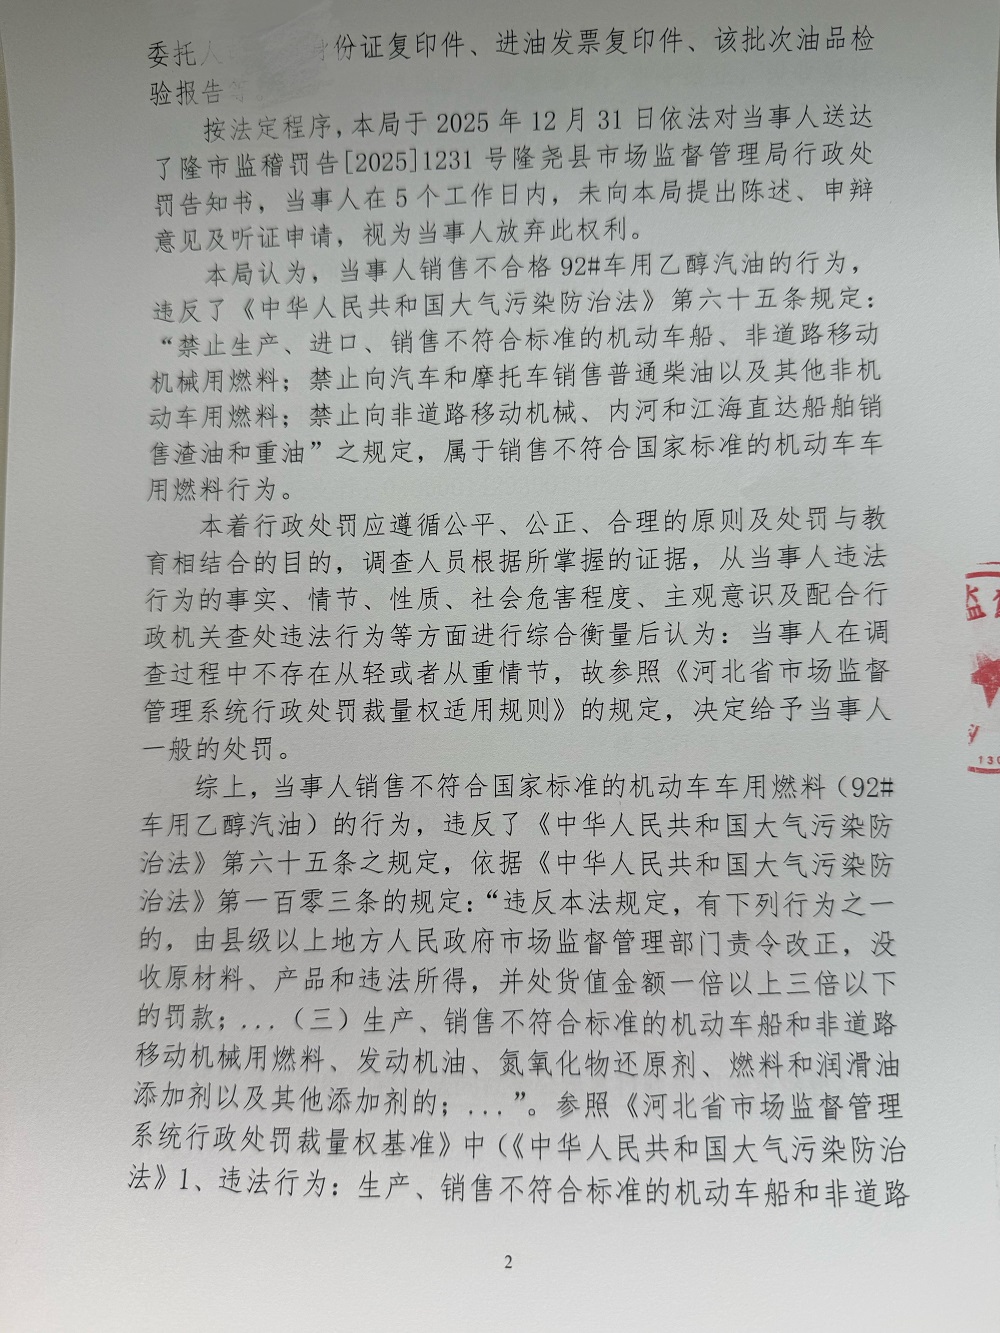 委托人 身份证复印件、进油发票复印件、该批次油品检
验报告等。
按法定程序，本局于 2025 年 12 月 31 日依法对当事人送达
了隆市监稽罚告[2025]1231 号隆尧县市场监督管理局行政处
罚告知书，当事人在 5 个工作日内，未向本局提出陈述、申辩
意见及听证申请，视为当事人放弃此权利。
本局认为，当事人销售不合格 92#车用乙醇汽油的行为，
违反了《中华人民共和国大气污染防治法》第六十五条规定：
“禁止生产、进口、销售不符合标准的机动车船、非道路移动
机械用燃料；禁止向汽车和摩托车销售普通柴油以及其他非机
动车用燃料；禁止向非道路移动机械、内河和江海直达船舶销
售渣油和重油”之规定，属于销售不符合国家标准的机动车车
用燃料行为。
本着行政处罚应遵循公平、公正、合理的原则及处罚与教
育相结合的目的，调查人员根据所掌握的证据，从当事人违法
行为的事实、情节、性质、社会危害程度、主观意识及配合行
政机关查处违法行为等方面进行综合衡量后认为：当事人在调
查过程中不存在从轻或者从重情节，故参照《河北省市场监督
管理系统行政处罚裁量权适用规则》的规定，决定给予当事人
一般的处罚。
综上，当事人销售不符合国家标准的机动车车用燃料（92#
车用乙醇汽油）的行为，违反了《中华人民共和国大气污染防
治法》第六十五条之规定，依据《中华人民共和国大气污染防
治法》第一百零三条的规定：“违反本法规定，有下列行为之一
的，由县级以上地方人民政府市场监督管理部门责令改正，没
收原材料、产品和违法所得，并处货值金额一倍以上三倍以下
的罚款；...（三）生产、销售不符合标准的机动车船和非道路
移动机械用燃料、发动机油、氮氧化物还原剂、燃料和润滑油
添加剂以及其他添加剂的；...”。参照《河北省市场监督管理
系统行政处罚裁量权基准》中（《中华人民共和国大气污染防治
法》1、违法行为：生产、销售不符合标准的机动车船和非道路
2
监
130